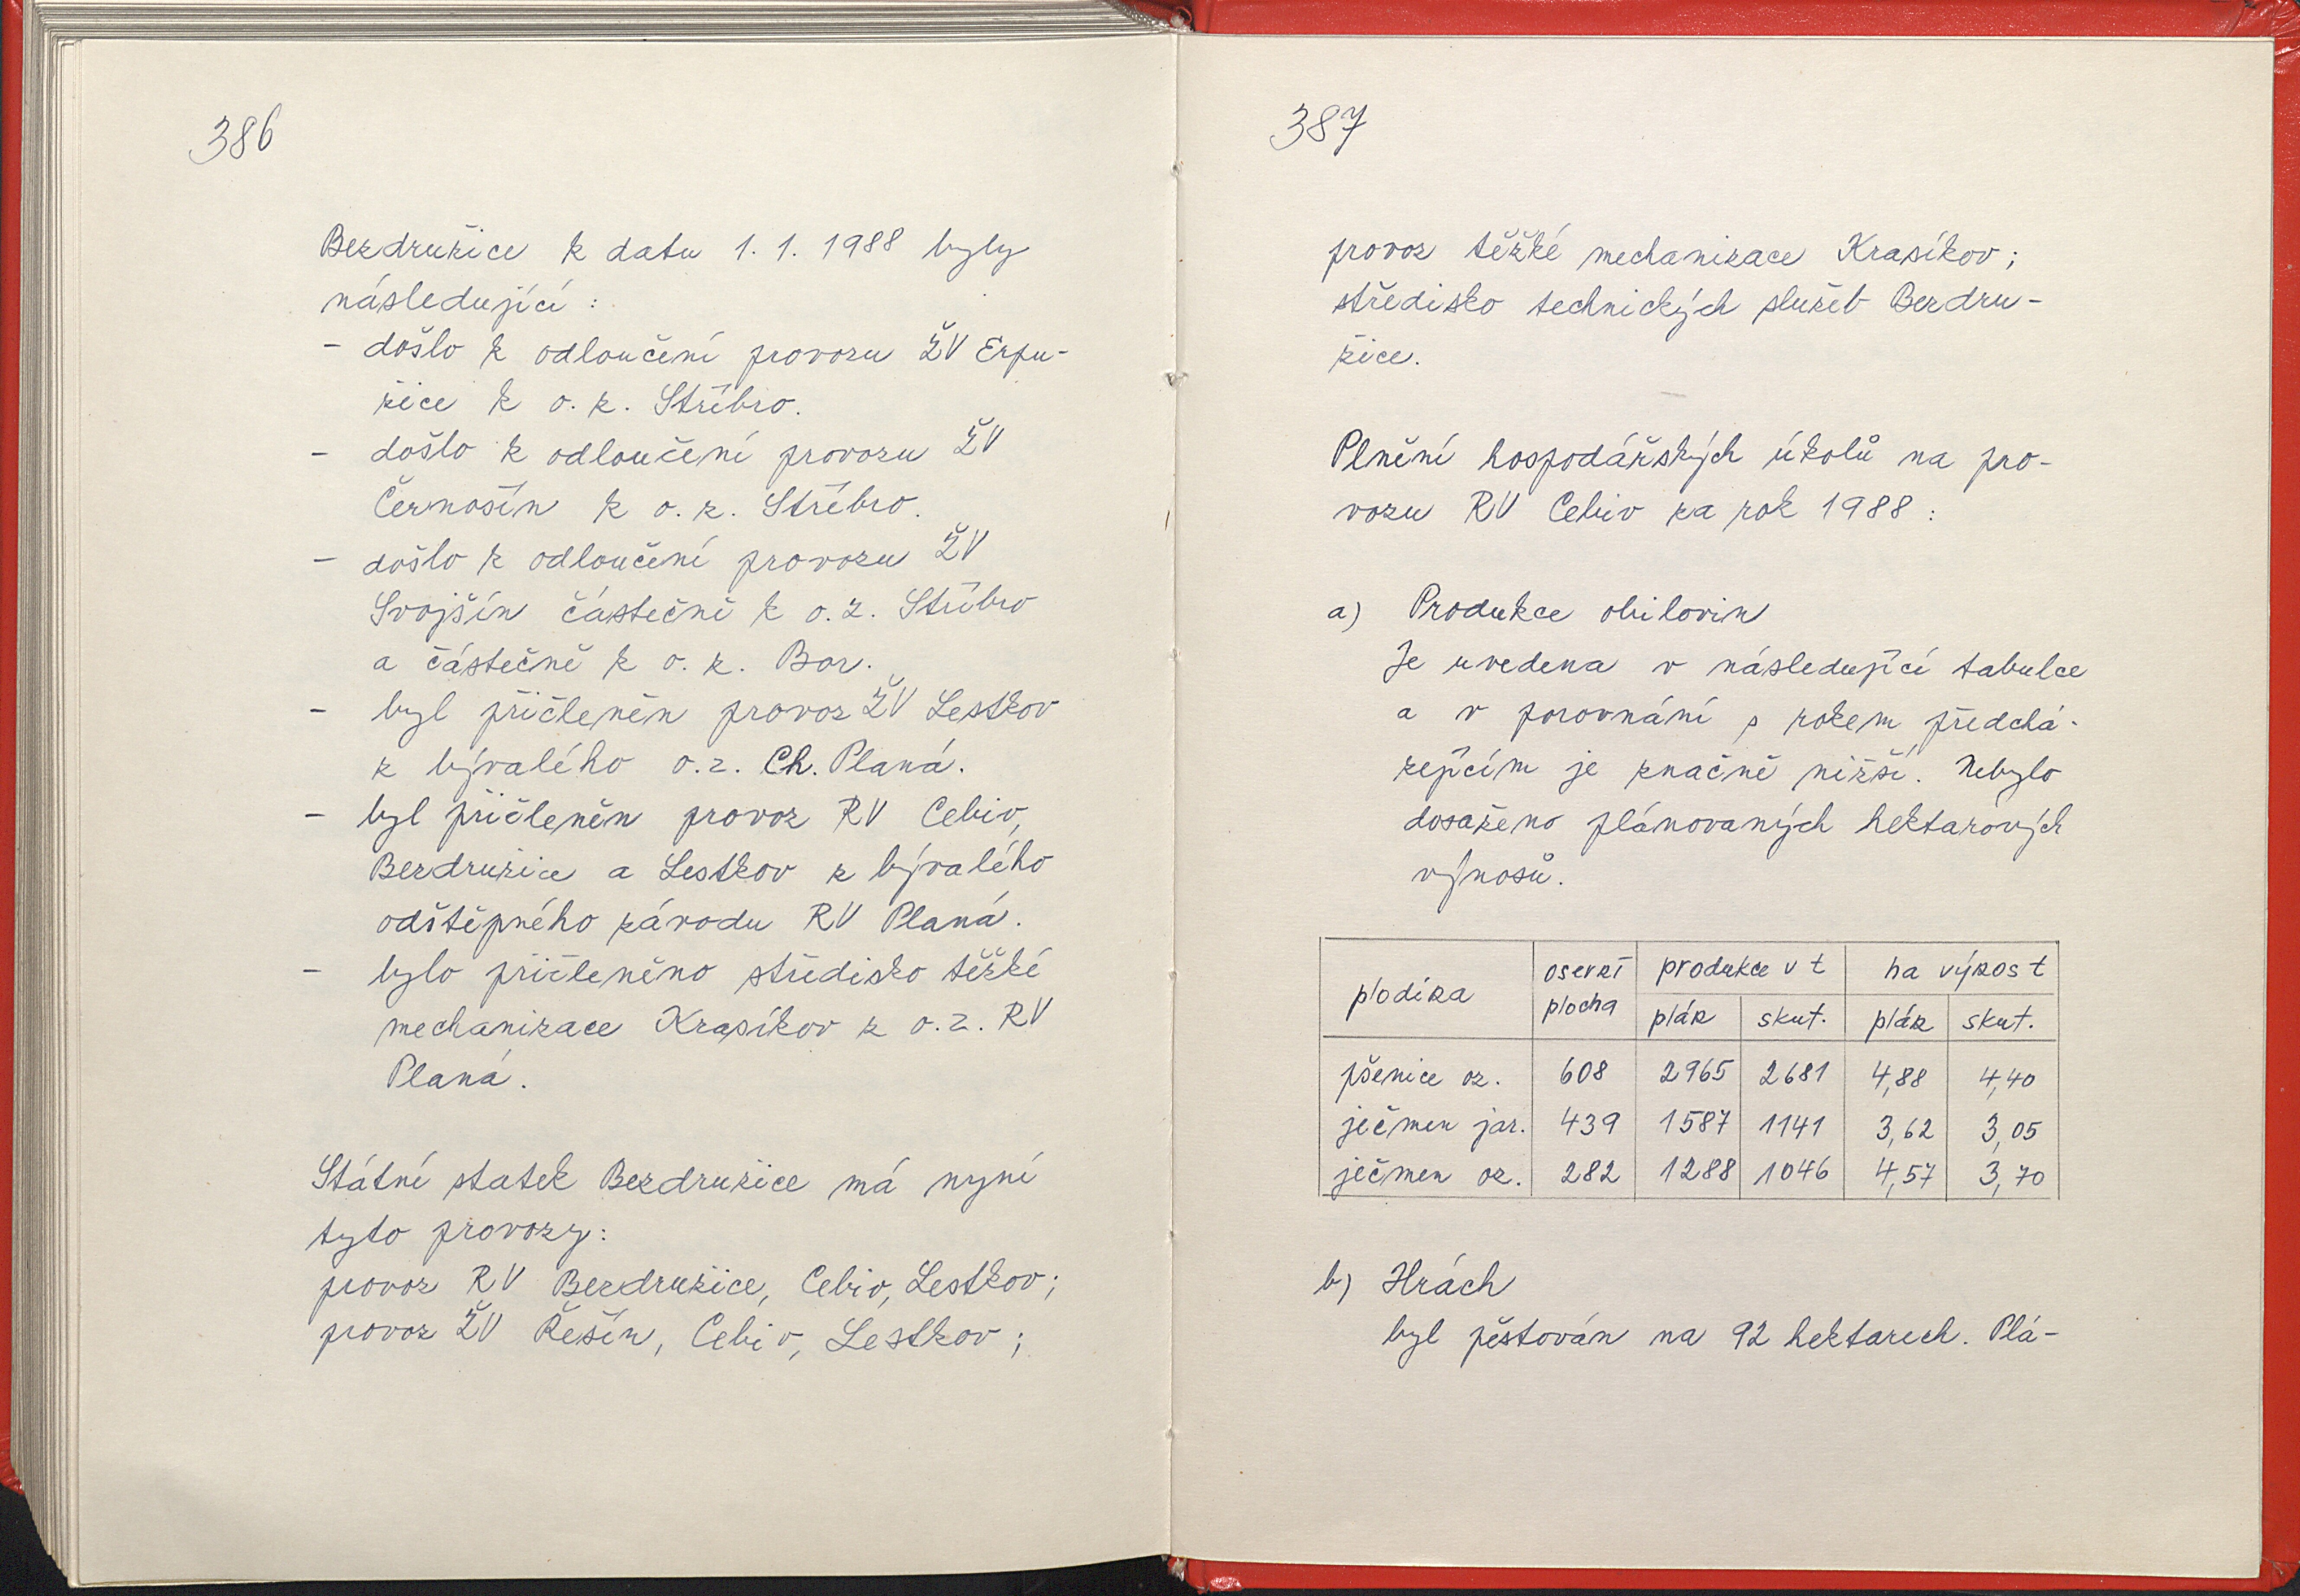 386
Bezdružice k datu 1. 1. 1988 byly
následující:
- došlo k odloučení provozu ŽV Erpu-
žice k o. z. Stříbro.
- došlo k odloučení provozu ŽV
Černošín k o. z. Stříbro.
- došlo k odloučení provozu ŽV
Svojšín částečně k o. z. Stříbro
a částečně k o. z. Bor.
- byl přičleněn provoz ŽV Lestkov
z bývalého o. z. Ch. Planá.
- byl přičleněn provoz RV Cebiv,
Bezdružice a Lestkov z bývalého
odštěpného závodu RV Planá.
- bylo přičleněno středisko těžké
mechanizace Krasíkov z o. z. RV
Planá.
Státní statek Bezdružice má nyní
tyto provozy:
provoz RV Bezdružice, Cebiv, Lestkov;
provoz ŽV Řešín, Cebiv, Lestkov;
387
provoz těžké mechanizace Krasíkov;
středisko technických služeb Bezdru-
žice.
Plnění hospodářských úkolů na pro-
vozu RV Cebiv za rok 1988:
a) Produkce obilovin
Je uvedena v následující tabulce
a v porovnání s rokem předchá-
zejícím je značně nižší. Nebylo
dosaženo plánovaných hektarových
výnosů.
plodina osevní plocha produkce v t ha výnos t
plán skut. plán skut.
pšenice oz. 608 2965 2681 4,88 4,40
ječmen jar. 439 1587 1141 3,62 3,05
ječmen oz. 282 1288 1046 4,57 3,70
b) Hrách
byl pěstován na 92 hektarech. Plá-